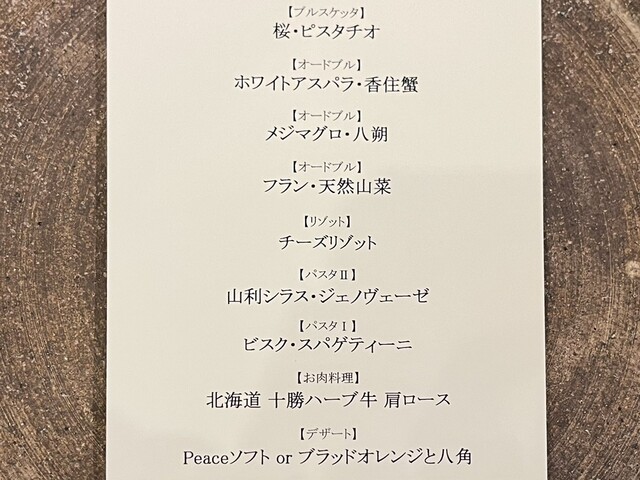 【ブルスケッタ】
桜・ピスタチオ
【オードブル】
ホワイトアスパラ・香住蟹
【オードブル】
メジマグロ・八朔
【オードブル】
フラン・天然山菜
【リゾット】
チーズリゾット
【パスタⅡ】
山利シラス・ジェノヴェーゼ
【パスタⅠ】
ビスク・スパゲティーニ
【お肉料理】
北海道 十勝ハーブ牛 肩ロース
【デザート】
Peaceソフト or ブラッドオレンジと八角